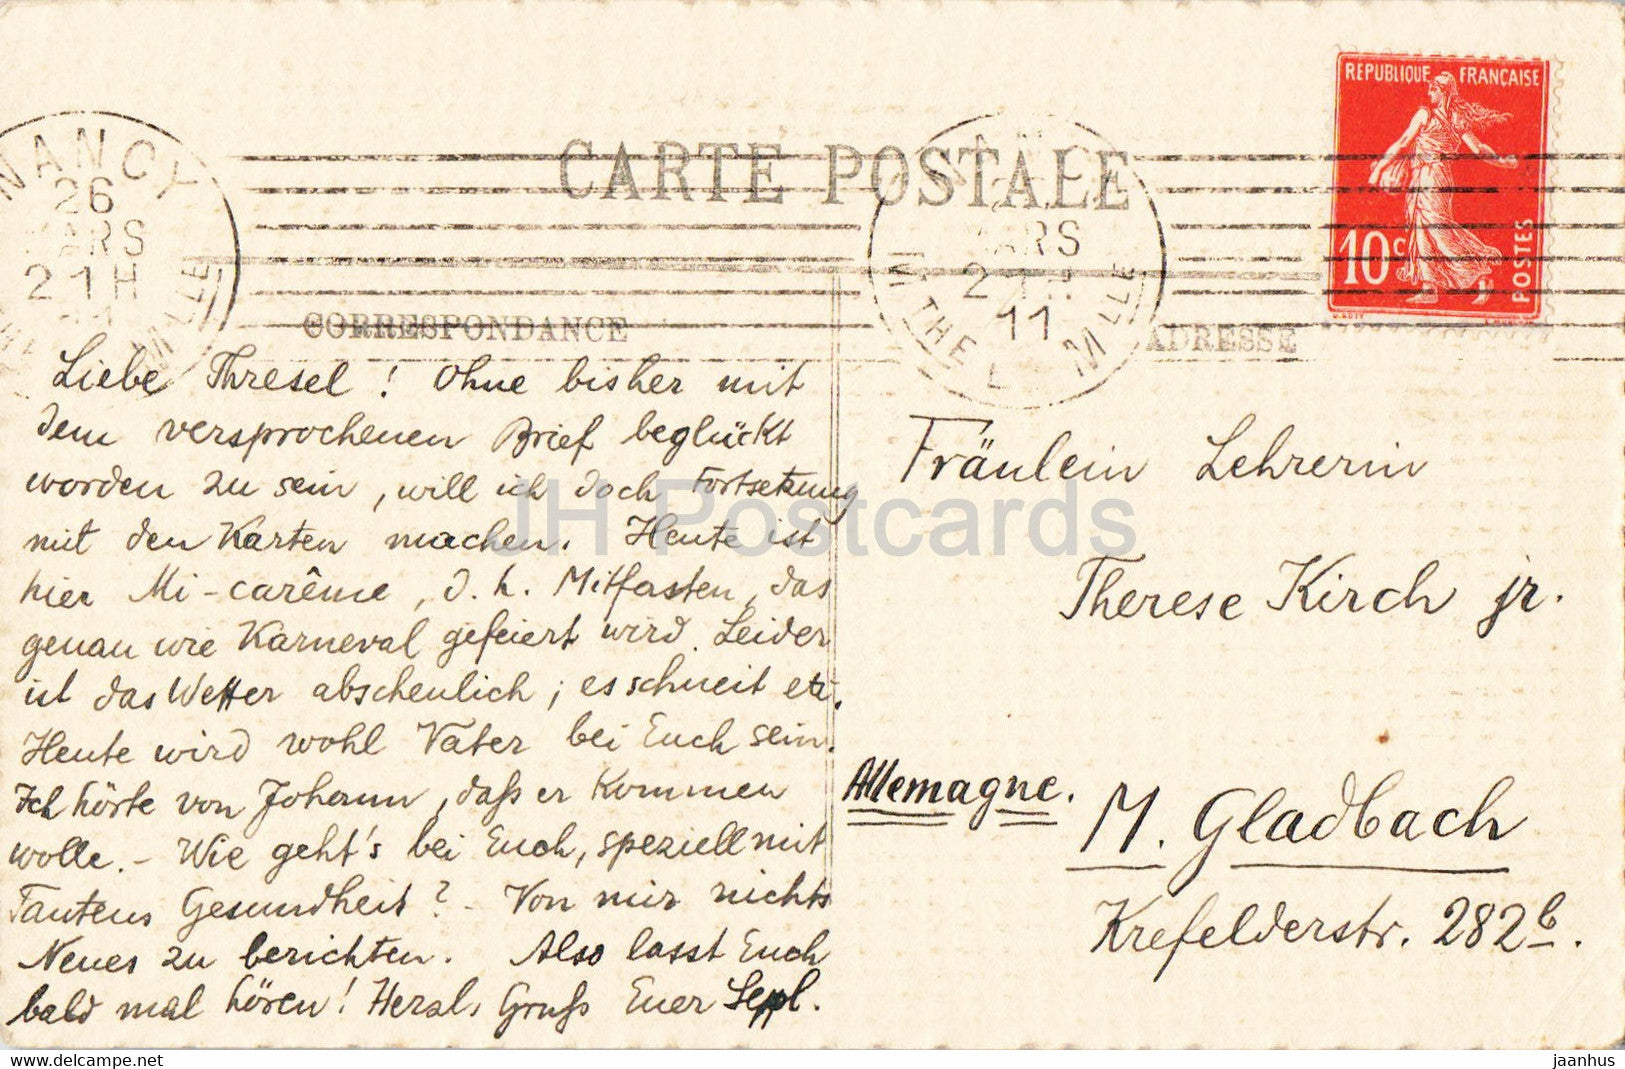 CARTE POSTALE
REPUBLIQUE FRANÇAISE
10c
POSTES
NANCY
26
MARS
21H
MTHE MLLE
MARS
11
M THE MLLE
CORRESPONDANCE
ADRESSE
Liebe Thresel! Ohne bisher mit
dem versprochenen Brief beglückt
worden zu sein, will ich doch Fortsetzung
mit den Karten machen. Heute ist
hier Mi-carême, d. h. Mitfasten, das
genau wie Karneval gefeiert wird. Leider
ist das Wetter abscheulich; es schneit etc.
Heute wird wohl Vater bei Euch sein.
Ich hörte von Johann, daß er kommen
wolle. - Wie geht's bei Euch, speziell mit
Tantens Gesundheit? - Von mir nichts
Neues zu berichten. Also lasst Euch
bald mal hören! Herzl. Gruß Euer Seppl.
Fräulein Lehrerin
Therese Kirch jr.
Allemagne.
M. Gladbach
Krefelderstr. 282b.
JH Postcards
www.hippostcard.com/store/jhpostcards
jaanhus